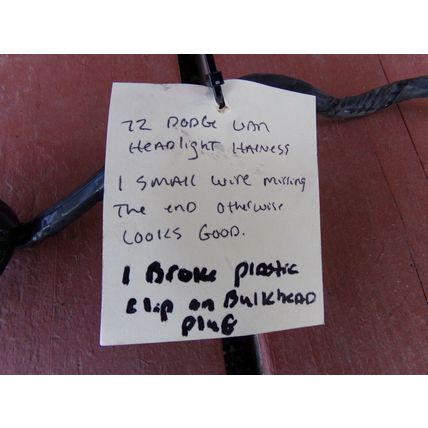 72 DODGE VAN
HEADlight HARNESS
1 SMALL wire missing
The end otherwise
LOOKS GOOD.
1 Broke plastic
clip on BulkheAD
plug